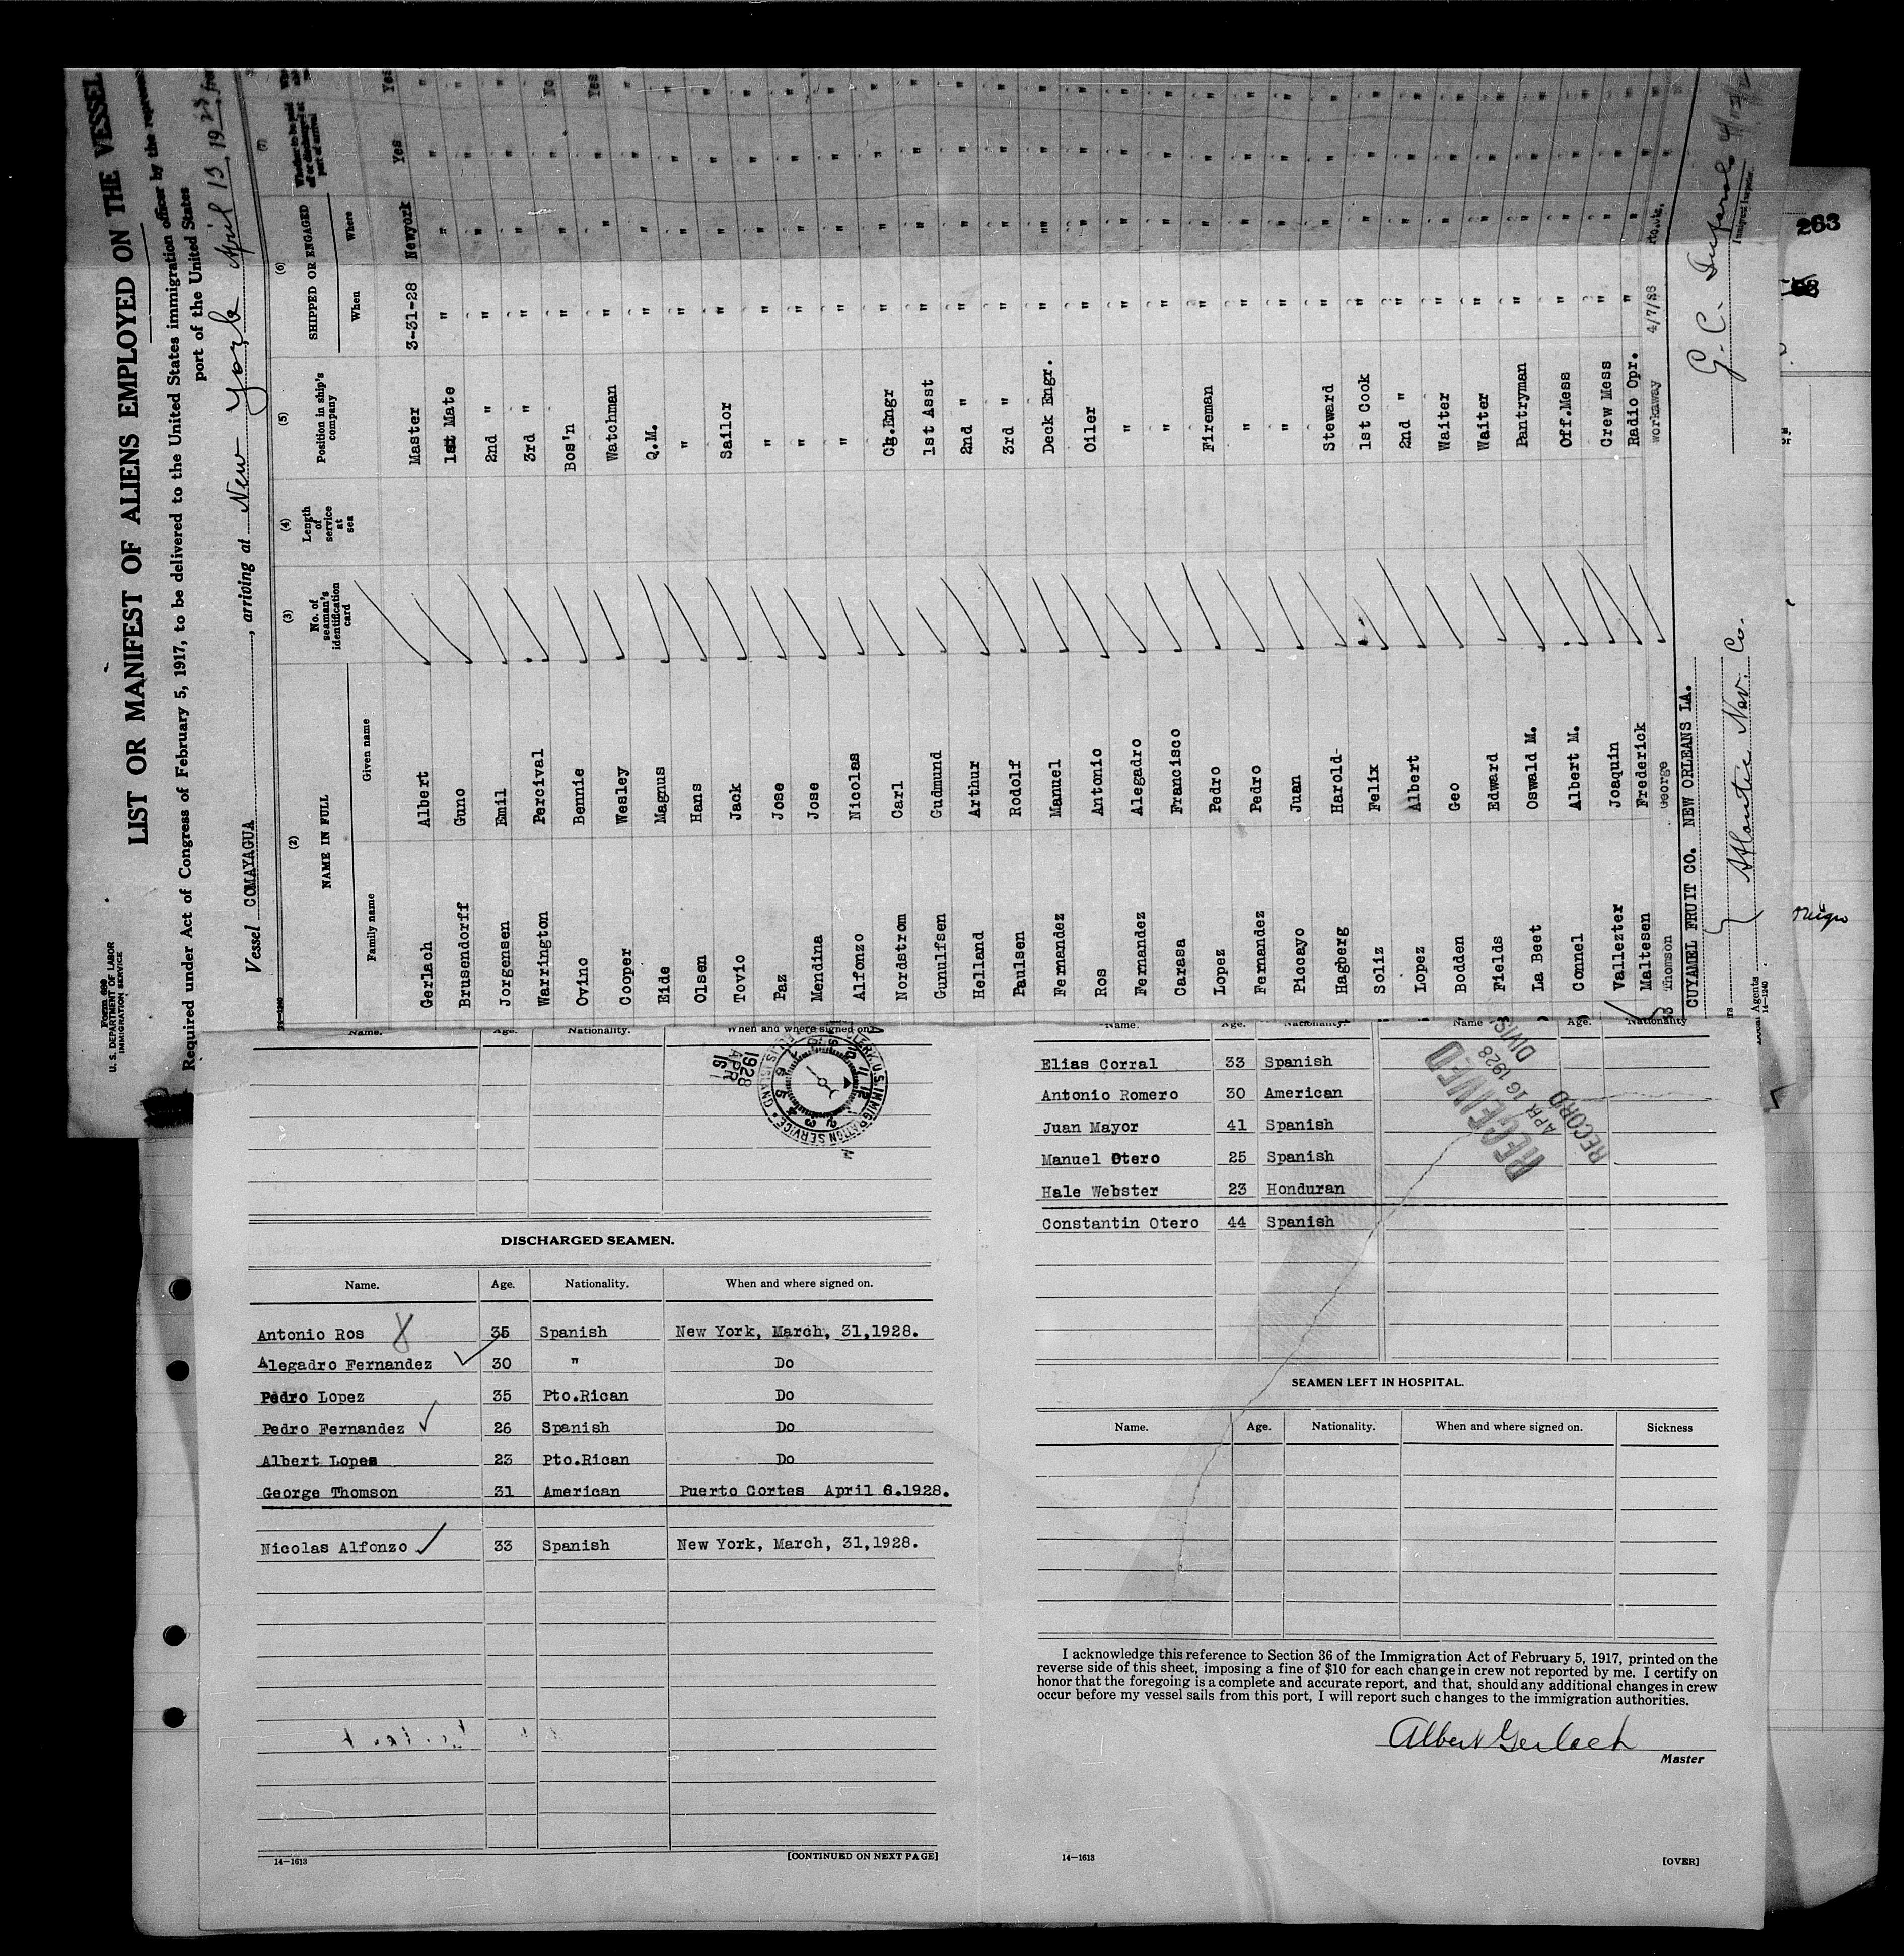 Form 680
U. S. DEPARTMENT OF LABOR
IMMIGRATION SERVICE
LIST OR MANIFEST OF ALIENS EMPLOYED ON THE VESSEL
Required under Act of Congress of February 5, 1917, to be delivered to the United States immigration officer by the
port of the United States
Vessel COMAYAGUA, arriving at New York April 13, 19 28
(2) (3) (4) (5) (6) (7)
NAME IN FULL No. of seaman's identification card Length of service at sea Position in ship's company SHIPPED OR ENGAGED
Family name Given name When Where
Gerlach Albert Master 3-31-28 Newyork Yes Yes
Brusendorff Guno 1st Mate " " " "
Jorgensen Emil 2nd " " " " "
Warrington Percival 3rd " " " " "
Ovino Bennie Bos'n " " " No
Cooper Wesley Watchman " " " Yes
Eide Magnus Q.M. " " " "
Olsen Hans " " " " "
Tovio Jack Sailor " " " "
Paz Jose " " " " "
Mendina Jose " " " " "
Alfonzo Nicolas " " " " "
Nordstrom Carl Ch.Engr " " " "
Gunulfsen Gudmund 1st Asst " " " "
Helland Arthur 2nd " " " " "
Paulsen Rodolf 3rd " " " " "
Fernandez Manuel Deck Engr. " " " "
Ros Antonio Oiler " " " "
Fernandez Alegadro " " " " "
Carasa Francisco " " " " "
Lopez Pedro Fireman " " " "
Fernandez Pedro " " " " "
Piccayo Juan " " " " "
Hagberg Harold- Steward " " " "
Soliz Felix 1st Cook " " " "
Lopez Albert 2nd " " " " "
Bodden Geo Waiter " " " "
Fields Edward Waiter " " " "
La Beet Oswald M. Pantryman " " " "
Connel Albert M. Off.Mess " " " "
Vallezter Joaquin Crew Mess " " " "
Maltesen Frederick Radio Opr. " " " "
33 Thomson George workaway 4/7/28
CUYAMEL FRUIT CO. NEW ORLEANS LA.
Atlantic Nav. Co.
Local Agents
14-1240
Immigrant Inspector.
263
Name. Age. Nationality. When and where signed on.
CLERK U.S. IMMIGRATION SERVICE ELLIS ISLAND
1928
APR
16
DISCHARGED SEAMEN.
Name. Age. Nationality. When and where signed on.
Antonio Ros 35 Spanish New York, March, 31,1928.
Alegadro Fernandez 30 " Do
Pedro Lopez 35 Pto.Rican Do
Pedro Fernandez 26 Spanish Do
Albert Lopes 23 Pto.Rican Do
George Thomson 31 American Puerto Cortes April 6.1928.
Nicolas Alfonzo 33 Spanish New York, March, 31,1928.
14-1613
[CONTINUED ON NEXT PAGE]
Name. Age. Nationality. Name Age. Nationality
Elias Corral 33 Spanish
Antonio Romero 30 American
Juan Mayor 41 Spanish
Manuel Otero 25 Spanish
Hale Webster 23 Honduran
Constantin Otero 44 Spanish
RECEIVED
APR 16 1928
RECORD DIVIS
SEAMEN LEFT IN HOSPITAL.
Name. Age. Nationality. When and where signed on. Sickness
I acknowledge this reference to Section 36 of the Immigration Act of February 5, 1917, printed on the
reverse side of this sheet, imposing a fine of $10 for each change in crew not reported by me. I certify on
honor that the foregoing is a complete and accurate report, and that, should any additional changes in crew
occur before my vessel sails from this port, I will report such changes to the immigration authorities.
Albert Gerlach
Master
14-1613
[OVER]